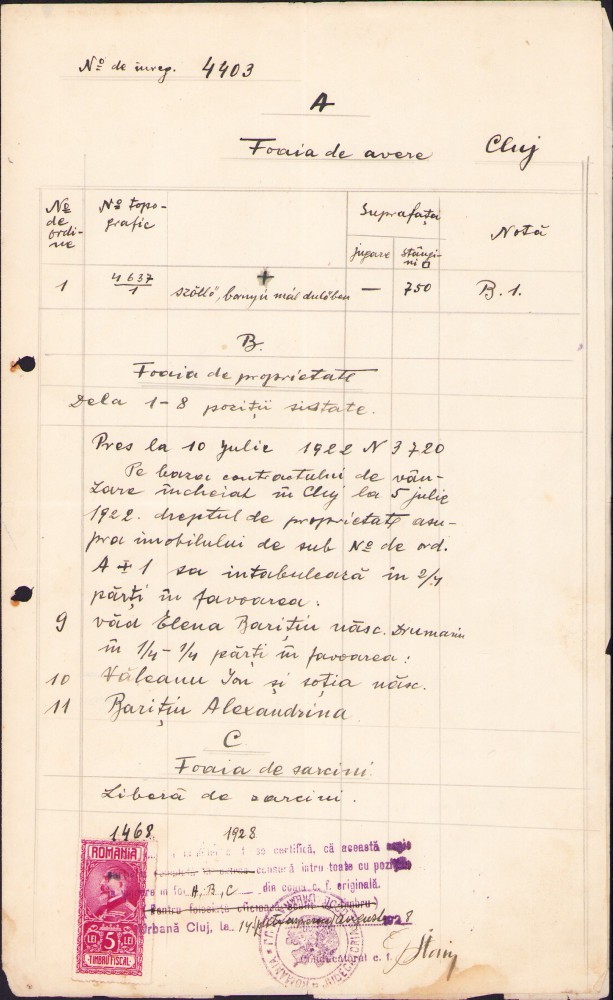 Nº de înreg. 4403
A
Foaia de avere Cluj
Nº de ordine
Nº topografic
Suprafața
jugăre
stângini □
Notă
1 4637/1 + szőlló, 750 B. 1.
B.
Foaia de proprietate
Dela 1-8 poziții sistate.
Pres la 10 Iulie 1922 N 3720
Pe baza contractului de vân-
zare încheiat în Cluj la 5 julie
1922. dreptul de proprietate asu-
pra imobilului de sub Nº de ord.
A + 1 sa intabulează în 2/4
părți în favoarea:
9 văd Elena Barițiu născ.
în 1/4-1/4 părți în favoarea:
10 Văleanu Ion și soția născ.
11 Barițiu Alexandrina
C
Foaia de sarcini
Liberă de sarcini.
1468 1928
se certifică, că această
concură întru toate cu
A, B, C din copia c. f. originală.
Urbană Cluj, la 14 August 1928
c. f.
ROMANIA
LEI 5 LEI
TIMBRU FISCAL